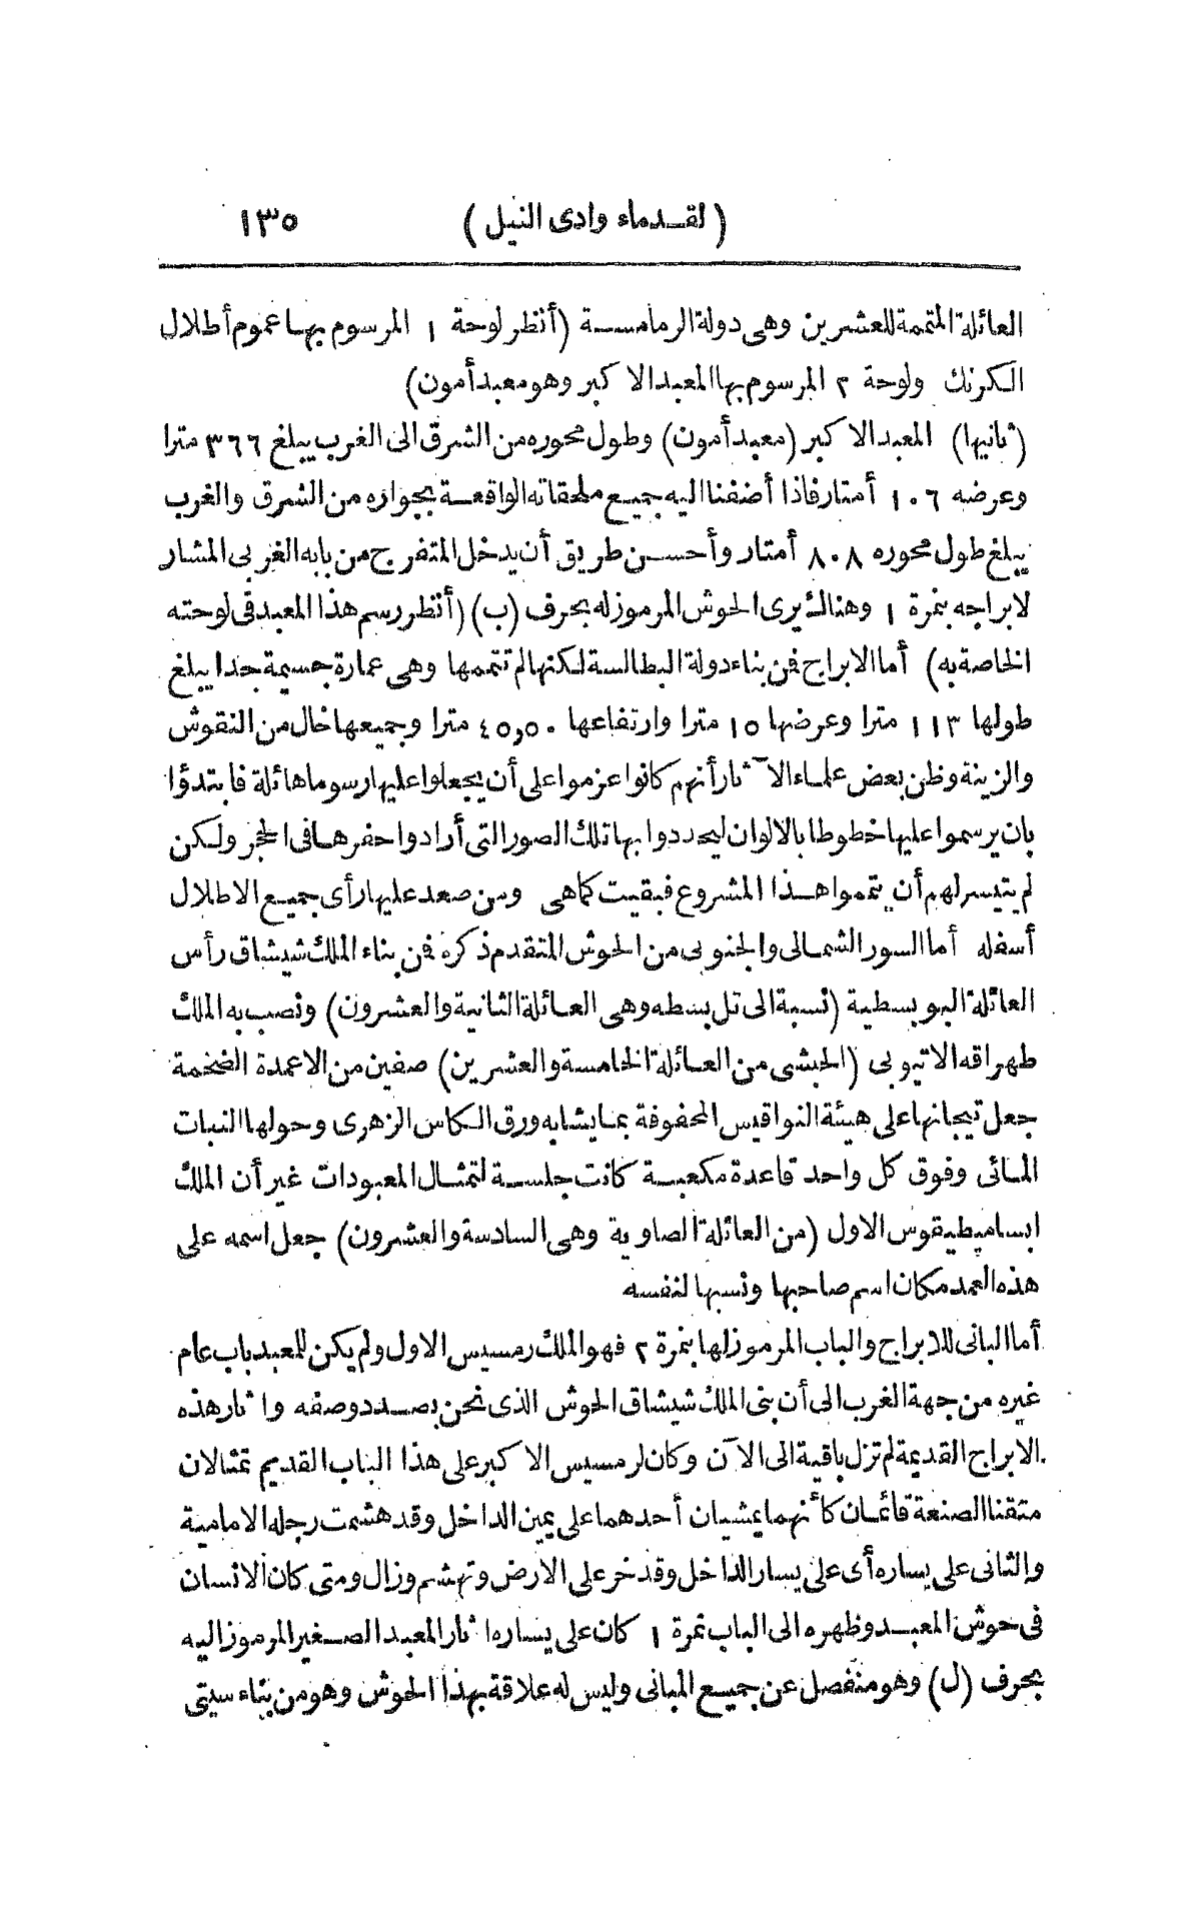 (لقدماء وادى النيل) ١٣٥
العائلة المتممة للعشرين وهى دولة الرمامسة (أنظر لوحة ١ المرسوم بها عموم أطلال
الكرنك ولوحة ٢ المرسوم بها المعبد الاكبر وهو معبد أمون)
(ثانيها) المعبد الاكبر (معبد أمون) وطول محوره من الشرق الى الغرب يبلغ ٣٦٦ مترا
وعرضه ١٠٦ أمتار فاذا أضفنا اليه جميع ملحقاته الواقعة بجواره من الشرق والغرب
يبلغ طول محوره ٨٠٨ أمتار وأحسن طريق أن يدخل المتفرج من بابه الغربى المشار
لابراجه بنمرة ١ وهناك يرى الحوش المرموز له بحرف (ب) (أنظر رسم هذا المعبد فى لوحته
الخاصة به) أما الابراج فمن بناء دولة البطالسة لكنها لم تتممها وهى عمارة جسيمة جدا يبلغ
طولها ١١٣ مترا وعرضها ١٥ مترا وارتفاعها ٤٥,٥٠ مترا وجميعها خال من النقوش
والزينة وظن بعض علماء الآثار أنهم كانوا عزموا على أن يجعلوا عليها رسوما هائلة فابتدؤا
بان يرسموا عليها خطوطا بالالوان ليحددوا بها تلك الصور التى أرادوا حفرها فى الحجر ولكن
لم يتيسر لهم أن يتمموا هذا المشروع فبقيت كما هى ومن صعد عليها رأى جميع الاطلال
أسفله أما السور الشمالى والجنوبى من الحوش المتقدم ذكره فمن بناء الملك شيشاق رأس
العائلة البوبسطية (نسبة الى تل بسطه وهى العائلة الثانية والعشرون) ونصب به الملك
طهراقه الاتيوبى (الحبشى من العائلة الخامسة والعشرين) صفين من الاعمدة الضخمة
جعل تيجانها على هيئة النواقيس المحفوفة بما يشابه ورق الكاس الزهرى وحولها النبات
المائى وفوق كل واحد قاعدة مكعبة كانت جلسة لتمثال المعبودات غير أن الملك
ابساميطيقوس الاول (من العائلة الصاوية وهى السادسة والعشرون) جعل اسمه على
هذه العمد مكان اسم صاحبها ونسبها لنفسه
أما البانى للابراج والباب المرموز لها بنمرة ٢ فهو الملك رمسيس الاول ولم يكن للمعبد باب عام
غيره من جهة الغرب الى أن بنى الملك شيشاق الحوش الذى نحن بصدد وصفه واثار هذه
الابراج القديمة لم تزل باقية الى الآن وكان لرمسيس الاكبر على هذا الباب القديم تمثالان
متقنا الصنعة قائمان كأنهما يمشيان أحدهما على يمين الداخل وقد هشمت رجله الامامية
والثانى على يساره أى على يسار الداخل وقد خر على الارض وتهشم وزال ومتى كان الانسان
فى حوش المعبد وظهره الى الباب نمرة ١ كان على يساره اثار المعبد الصغير المرموز اليه
بحرف (ل) وهو منفصل عن جميع المبانى وليس له علاقة بهذا الحوش وهو من بناء سيتى